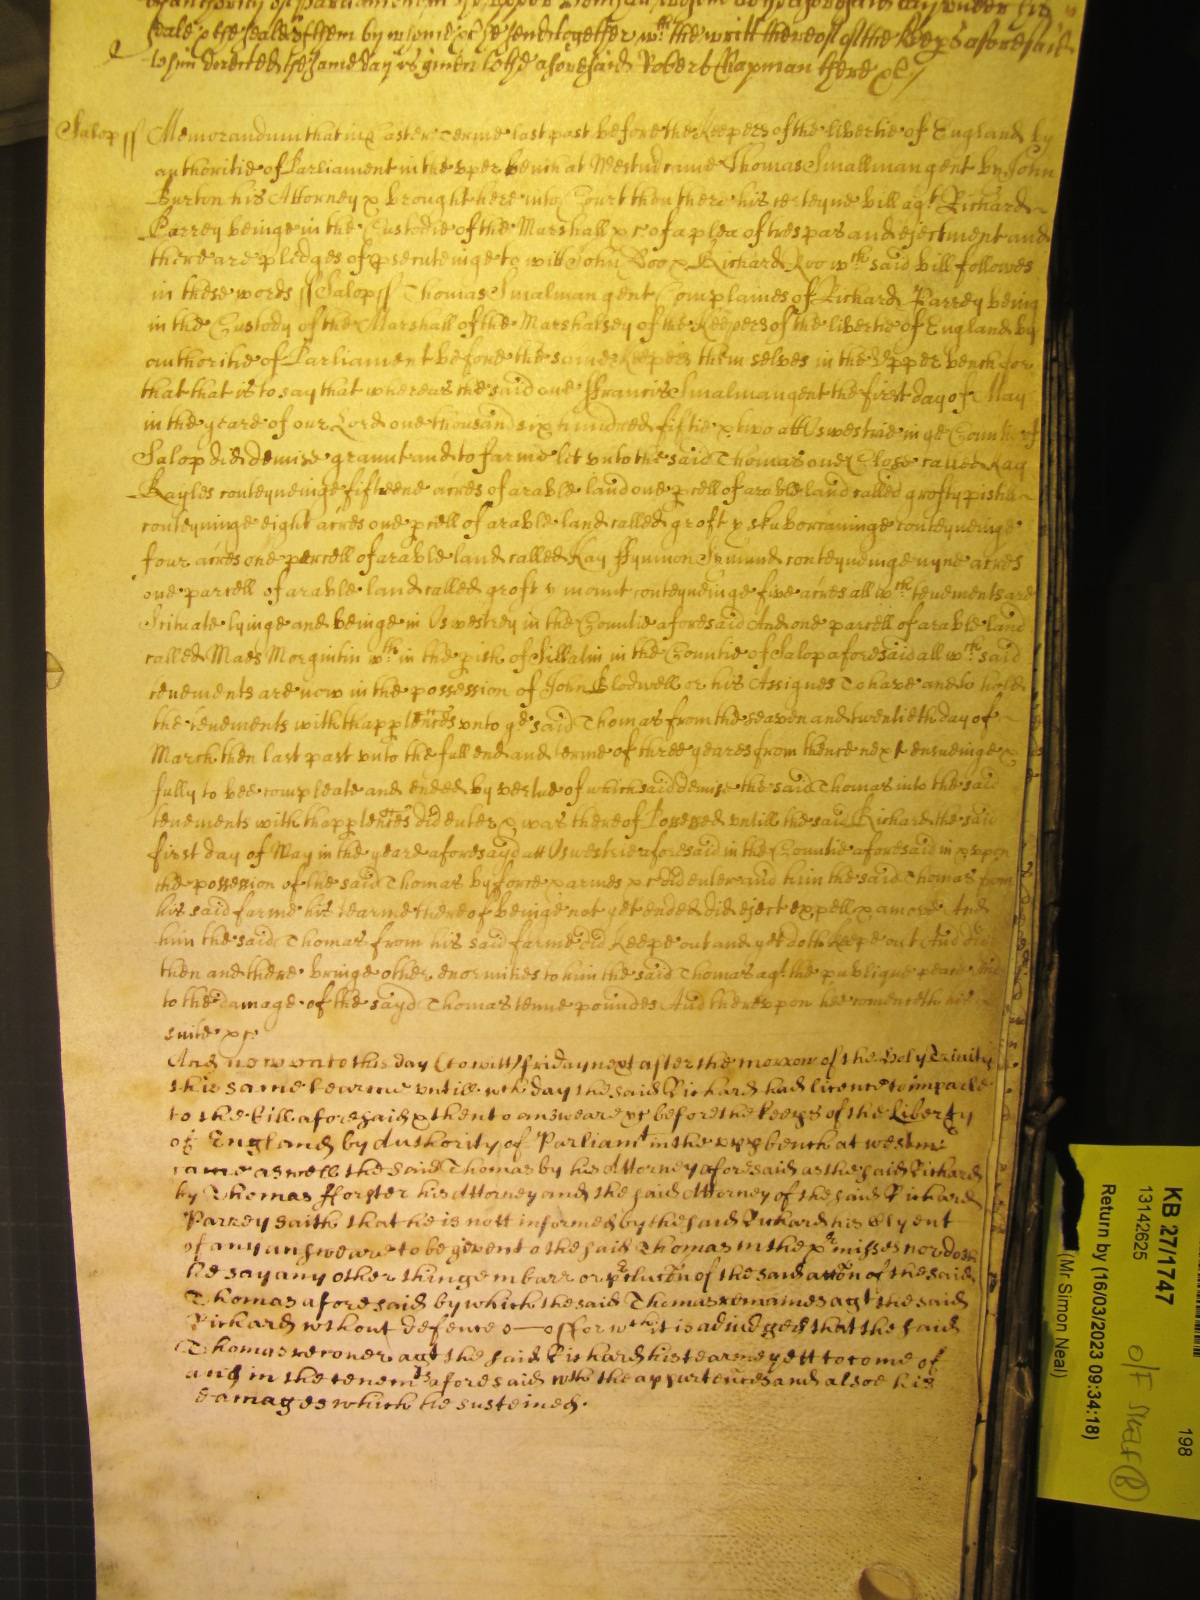 seale & the seales of them by whome &c he send together wth the writt thereof of the keeps aforesaid
whom directed the same day is given to the aforesaid Robert Chapman there &c /
Salop ss Memorandum that in Easter Terme last past before the Keepers of the libertie of England by
authoritie of Parliament in the vper bench at Westm came Thomas Smallman gent by John
Burton his Attorney & brought here into Court then there his certeyne bill agt Richard
Parrey beinge in the Custodie of the Marshall &c of a plea of trespas and ejectment and
there are pledges of psecuteinge to witt John Doo & Richard Roo wth said bill followes
in these words ss Salop ss Thomas Smalman gent Complaines of Richard Parrey being
in the Custody of the Marshall of the Marshalsey of the Keepers of the libertie of England by
authoritie of Parliament before the same Keepers them selves in the Vpper bench for
that that is to say that whereas the said one ffrancis Smalman gent the first day of May
in the yeare of our Lord one thousand six hundred fiftie & two att Oswestrie in ye Countie of
Salop did demise graunt and to farme let vnto the said Thomas one Close called Kay
Kayles conteyneinge fifteene acres of arable land one pcell of arable land called grofty pistill
conteyninge eight acres one pcell of arable land called groft y skuborianinge conteyneinge
four acres one percell of arable land called Kay ffynnon conteyneinge nyne acres
one parcell of arable land called groft y mount conteyneinge five acres all wch tenements are
Scituate lyinge and beinge in Oswestrey in the Countie aforesaid And one parcell of arable land
called Maes Morgintin wth in the pish of Sillatin in the Countie of Salop aforesaid all wch said
tenements are now in the possession of John Blodwell or his Assignes To have and to hold
the tenements with thapptences vnto ye said Thomas from the seaven and twentieth day of
March then last past vnto the full end and terme of three yeares from thence next ensueinge &
fully to bee compleate and ended by vertue of which said demise the said Thomas into the said
tenements with thapptences did enter & was thereof Possessed vntill the said Richard the said
first day of May in the yeare aforesayd att Oswestrie aforesaid in the Countie aforesaid in & vpon
the possession of the said Thomas by force & armes &c did enter and him the said Thomas from
his said farme his tearme thereof beinge not yet ended did eject expell & amove And
him the said Thomas from his said farme did keepe out and yet doth keepe out And did
then and there bringe other enormities to him the said Thomas agt the publique peace And
to the damage of the sayd Thomas tenne poundes And therevpon hee comenceth his
suite &c
And now vnto this day (to witt) friday next after the morrow of the Holy Trinity
this same tearme vntill wch day the said Richard had licence to imparle
to the Bill aforesaid & then to answeare &c before the keeps of the Liberty
of England by authority of Parliamt in the vpp bench at westm
came aswell the said Thomas by his Attorney aforesaid as the said Richard
by Thomas fforster his Attorney and the said Attorney of the said Richard
Parrey saith that he is nott informed by the said Richard his Clyent
of any answeare to be given to the said Thomas in the pmisses nor doth
he say any other thinge in barr or pclucon of the said accon of the said
Thomas aforesaid by which the said Thomas remaines agt the said
Richard wthout defence &c Therefore it is adiudged that the said
Thomas recover agt the said Richard his tearme yett to come of
and in the tenemts aforesaid with the appurtences and alsoe his
damages which he susteined.
KB 27/1747
13142625
198
O/F
Return by (16/03/2023 09:34:18)
(Mr Simon Neal)